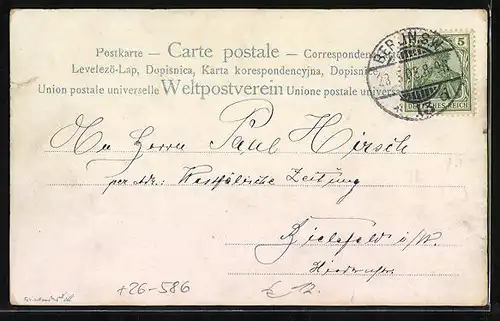 Postkarte – Carte postale – Correspondenz
Levelező-Lap, Dopisnica, Karta korespondencyjna, Dopisnice
Union postale universelle Weltpostverein Unione postale universale
BERLIN S.W.
5
DEUTSCHES REICH
An Herrn Paul Hirsch
per Adr.: Westfälische Zeitung
Bielefeld i/W.
+26-586